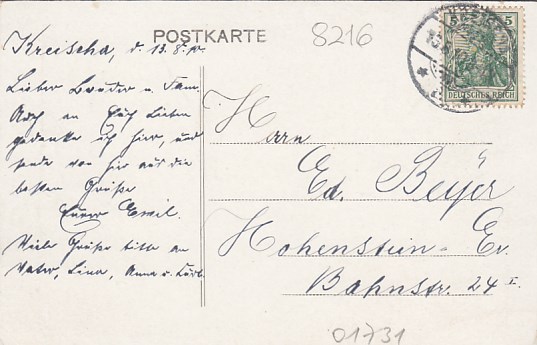 POSTKARTE
8216
5
DEUTSCHES REICH
Kreischa, d. 13. 8. 10.
Lieber Bruder u. Fam.
Auch an Euch Lieben
gedenke ich hier, und
sende von hier aus die
besten Grüße
Euer Emil.
Viele Grüße bitte an
Vater, Lina, Anna u. Kurt.
Herrn
Ed. Beyer
Hohenstein-Er.
Bahnstr. 24 I.
01731